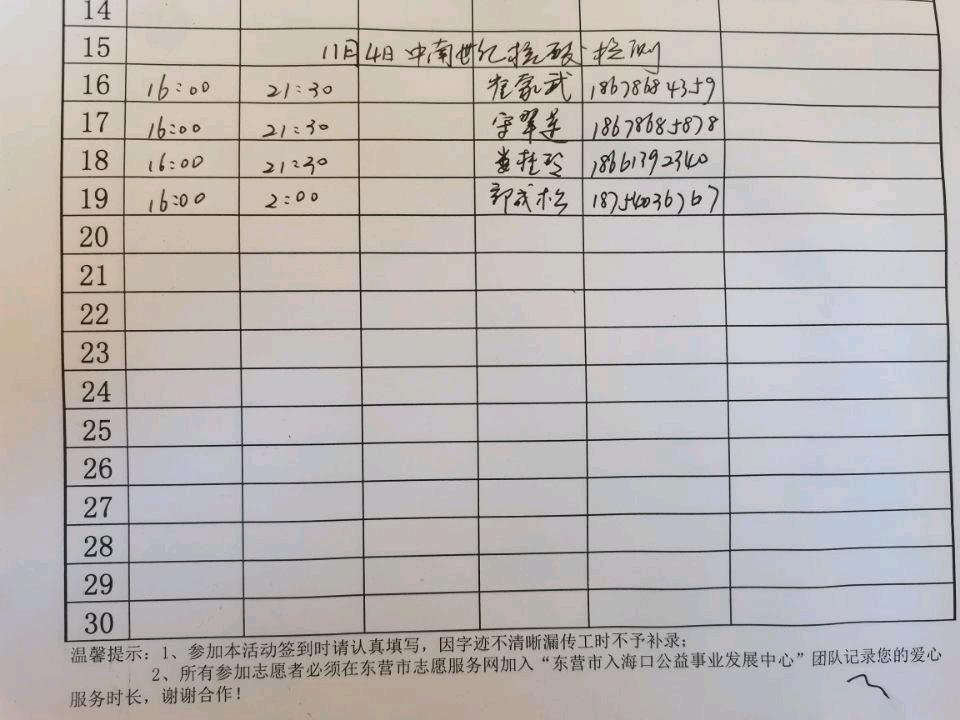 14
15 11月4日中南世纪核酸检测
16 16:00 21:30 崔家武 18678684359
17 16:00 21:30 宁翠莲 18678685878
18 16:00 21:30 桂玲 18661392340
19 16:00 2:00 郭成松 18754036767
20
21
22
23
24
25
26
27
28
29
30
温馨提示：1、参加本活动签到时请认真填写，因字迹不清晰漏传工时不予补录；
2、所有参加志愿者必须在东营市志愿服务网加入“东营市入海口公益事业发展中心”团队记录您的爱心
服务时长，谢谢合作！